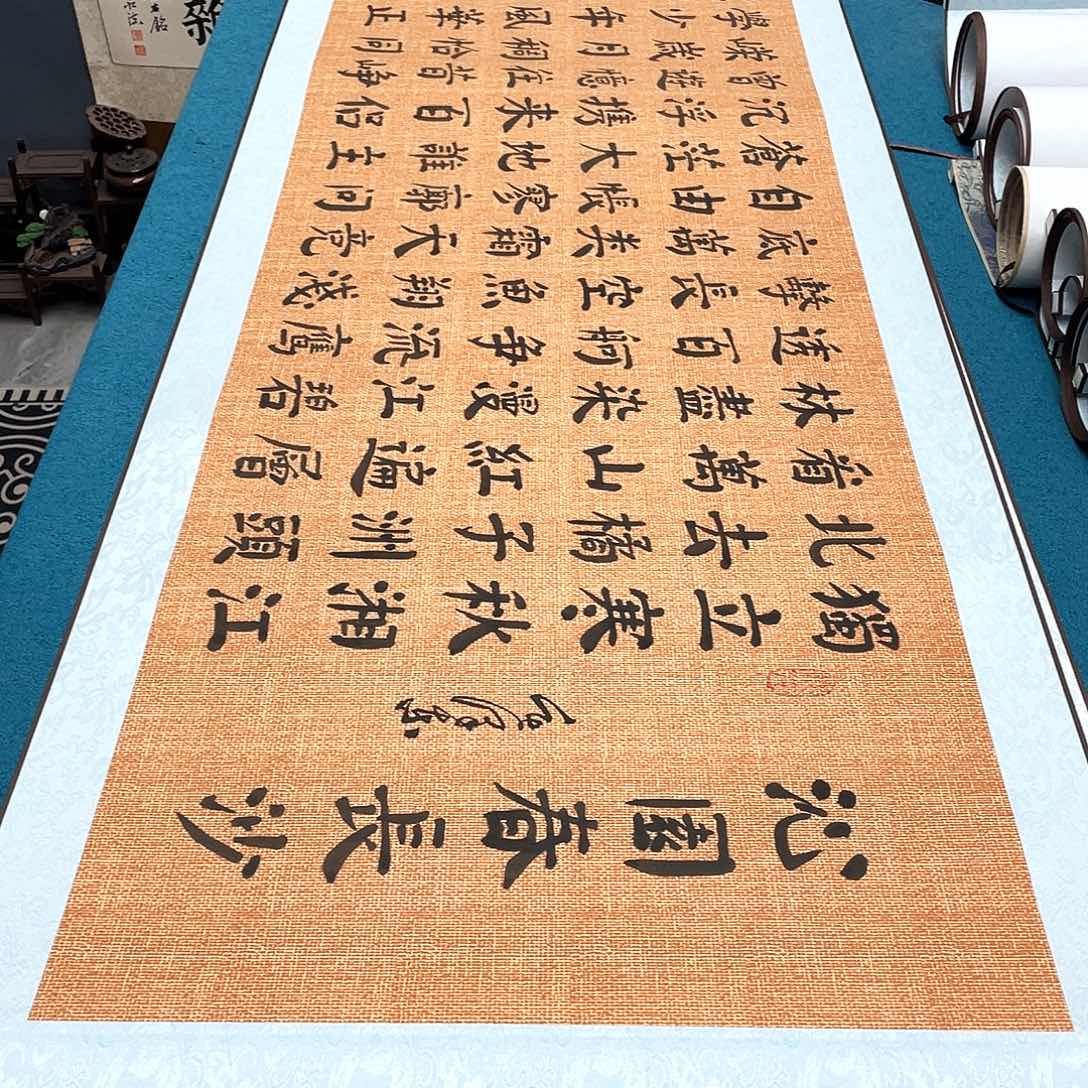 沁園春長沙
獨立寒秋湘江
北去橘子洲頭
看萬山紅遍層
林盡染漫江碧
透百舸争流鷹
擊長空魚翔淺
底萬类霜天竞
自由悵寥廓问
蒼茫大地誰主
沉浮携来百侣
曾遊憶往昔崢
嶸歲月稠恰同
學少年風華正